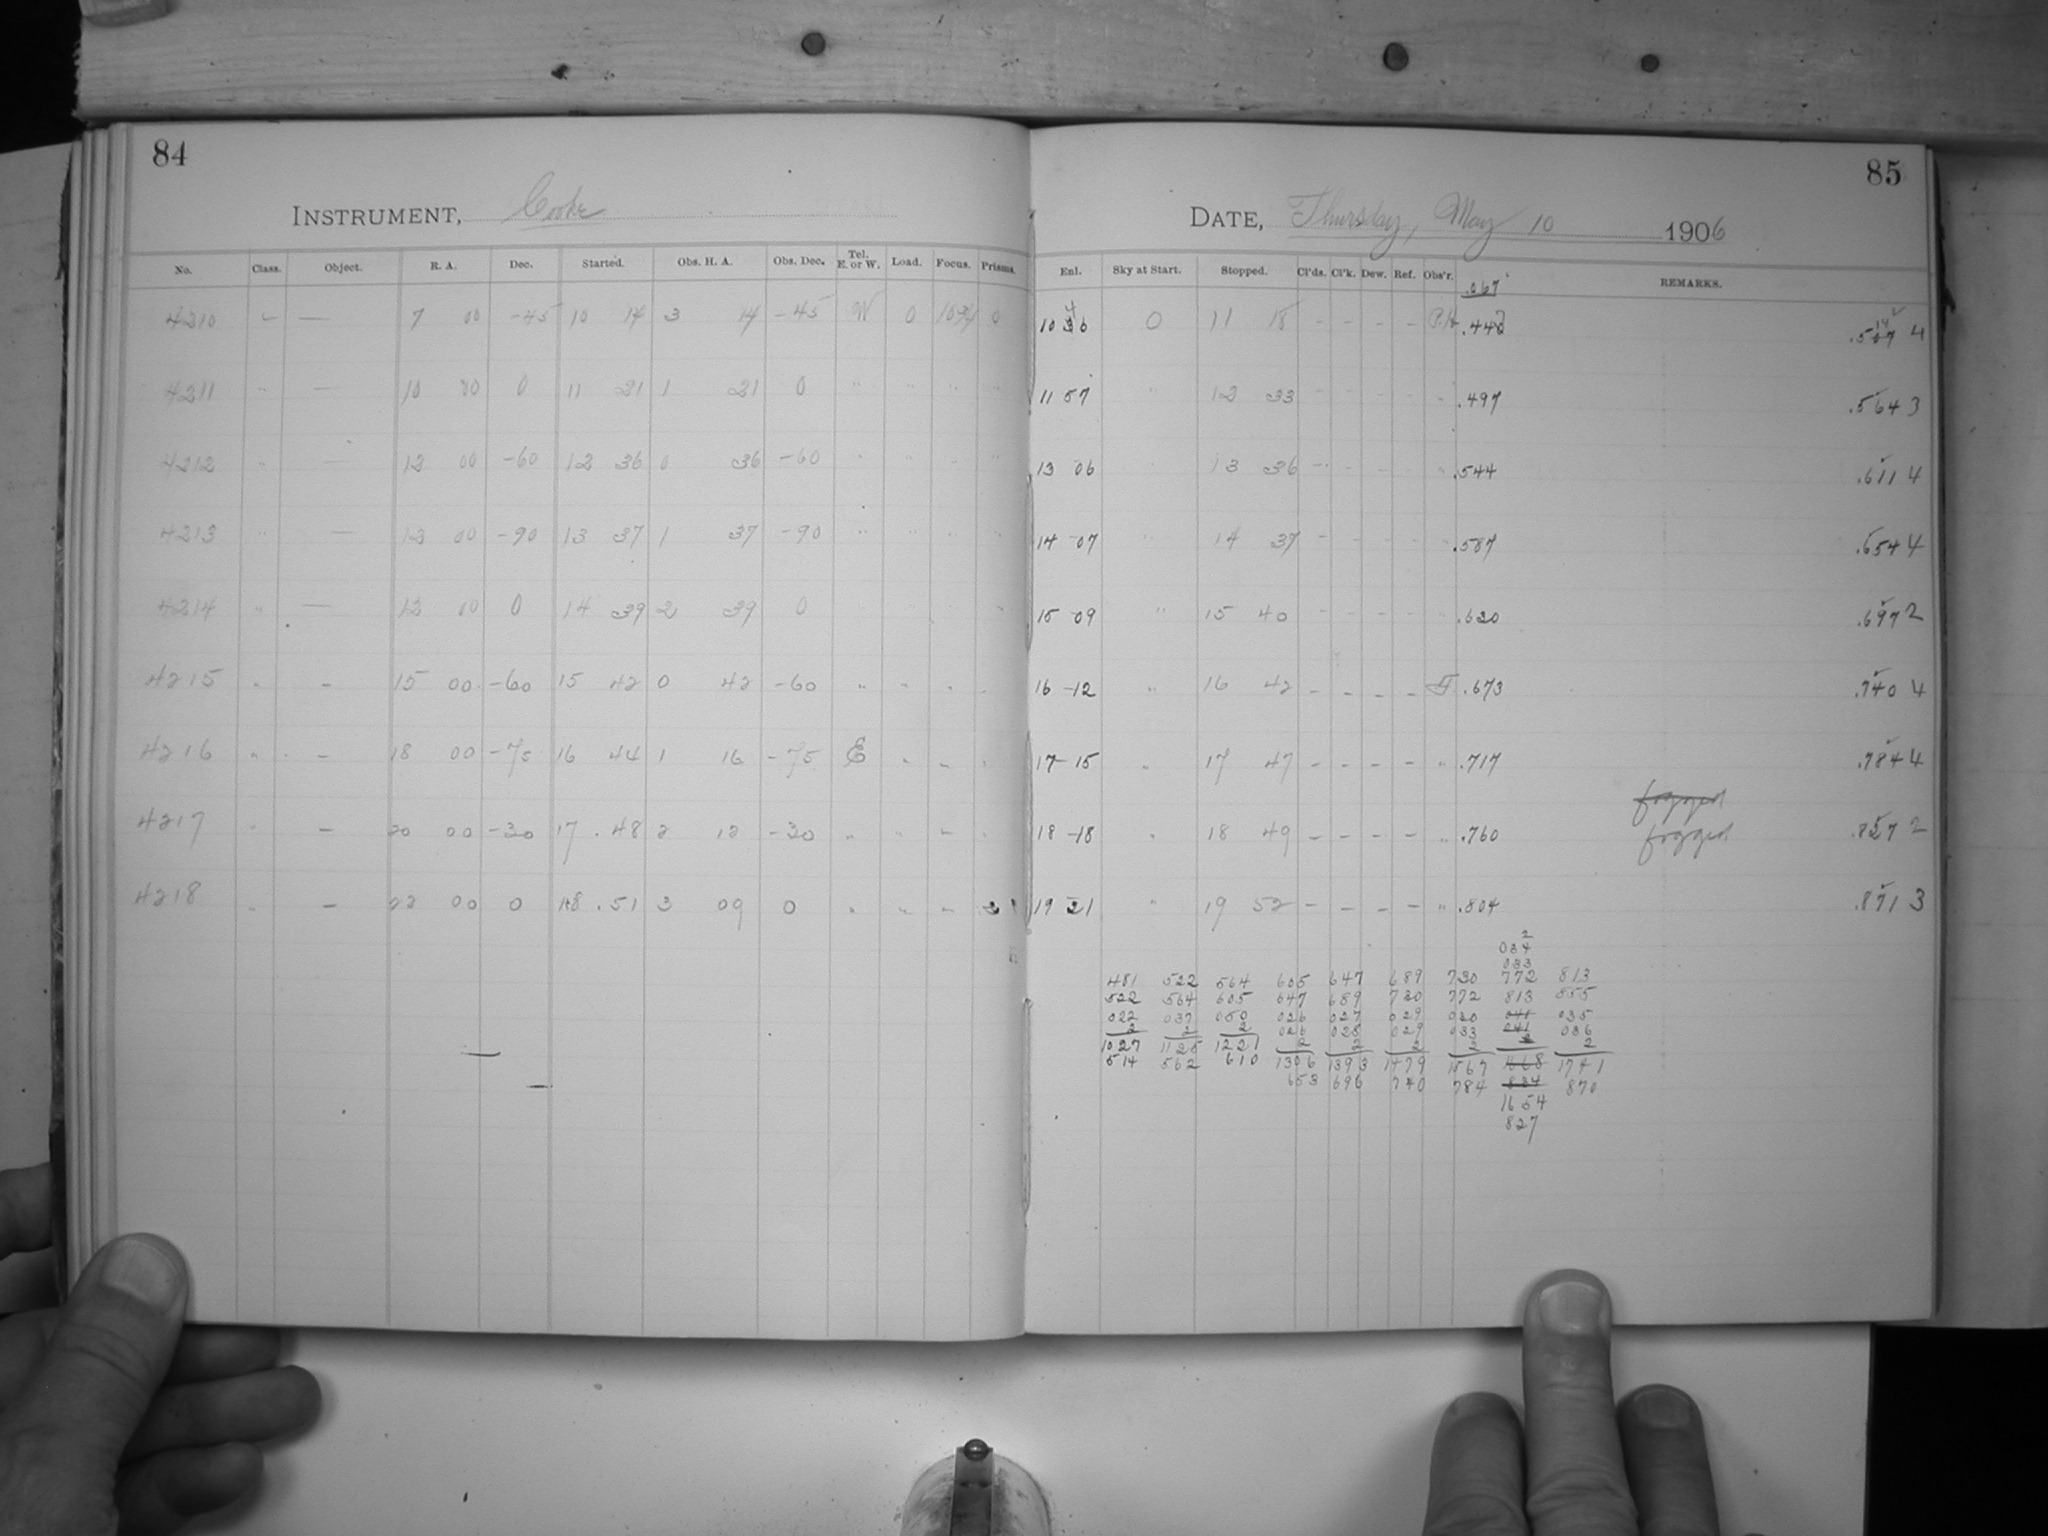 84
INSTRUMENT, Cooke
No. Class. Object. R. A. Dec. Started. Obs. H. A. Obs. Dec. Tel. E. or W. Load. Focus. Prisms.
4210 — 7 00 -45 10 14 3 14 -45 W 0 0
4211 " — 10 00 0 11 21 1 21 0 " " " "
4212 " — 12 00 -60 12 36 0 36 -60 " " " "
4213 " — 12 00 -90 13 37 1 37 -90 " " " "
4214 " — 12 00 0 14 39 2 39 0 " " " "
4215 " - 15 00 -60 15 42 0 42 -60 " " " "
4216 " - 18 00 -75 16 44 1 16 -75 E " " "
4217 " - 20 00 -30 17 48 2 12 -30 " " " "
4218 " - 22 00 0 18 51 3 09 0 " " "
85
DATE, Thursday, May 10 1906
Enl. Sky at Start. Stopped. Cl'ds. Cl'k. Dew. Ref. Obs'r. REMARKS.
.067
0 11 18 - - - - 4
11 57 " 12 33 - - - - " .497 .564 3
13 06 " 13 36 - - - - " .544 .611 4
14 07 " 14 37 - - - - " .587 .654 4
15 09 " 15 40 - - - - " .630 .697 2
16 12 " 16 42 - - - - .673 .740 4
17 15 " 17 47 - - - - " .717 .784 4
fogged
18 18 " 18 49 - - - - " .760 fogged .827 2
19 21 " 19 52 - - - - " .804 .871 3
2
034
033
481 522 564 605 647 689 730 772 813
522 564 605 647 689 730 772 813 855
022 037 050 026 027 029 030 041 035
2 2 2 026 028 029 033 041 036
1027 1125 1221 2 2 2 2 2 2
514 562 610 1306 1393 1479 1567 1668 1741
653 696 740 784 834 870
1654
827